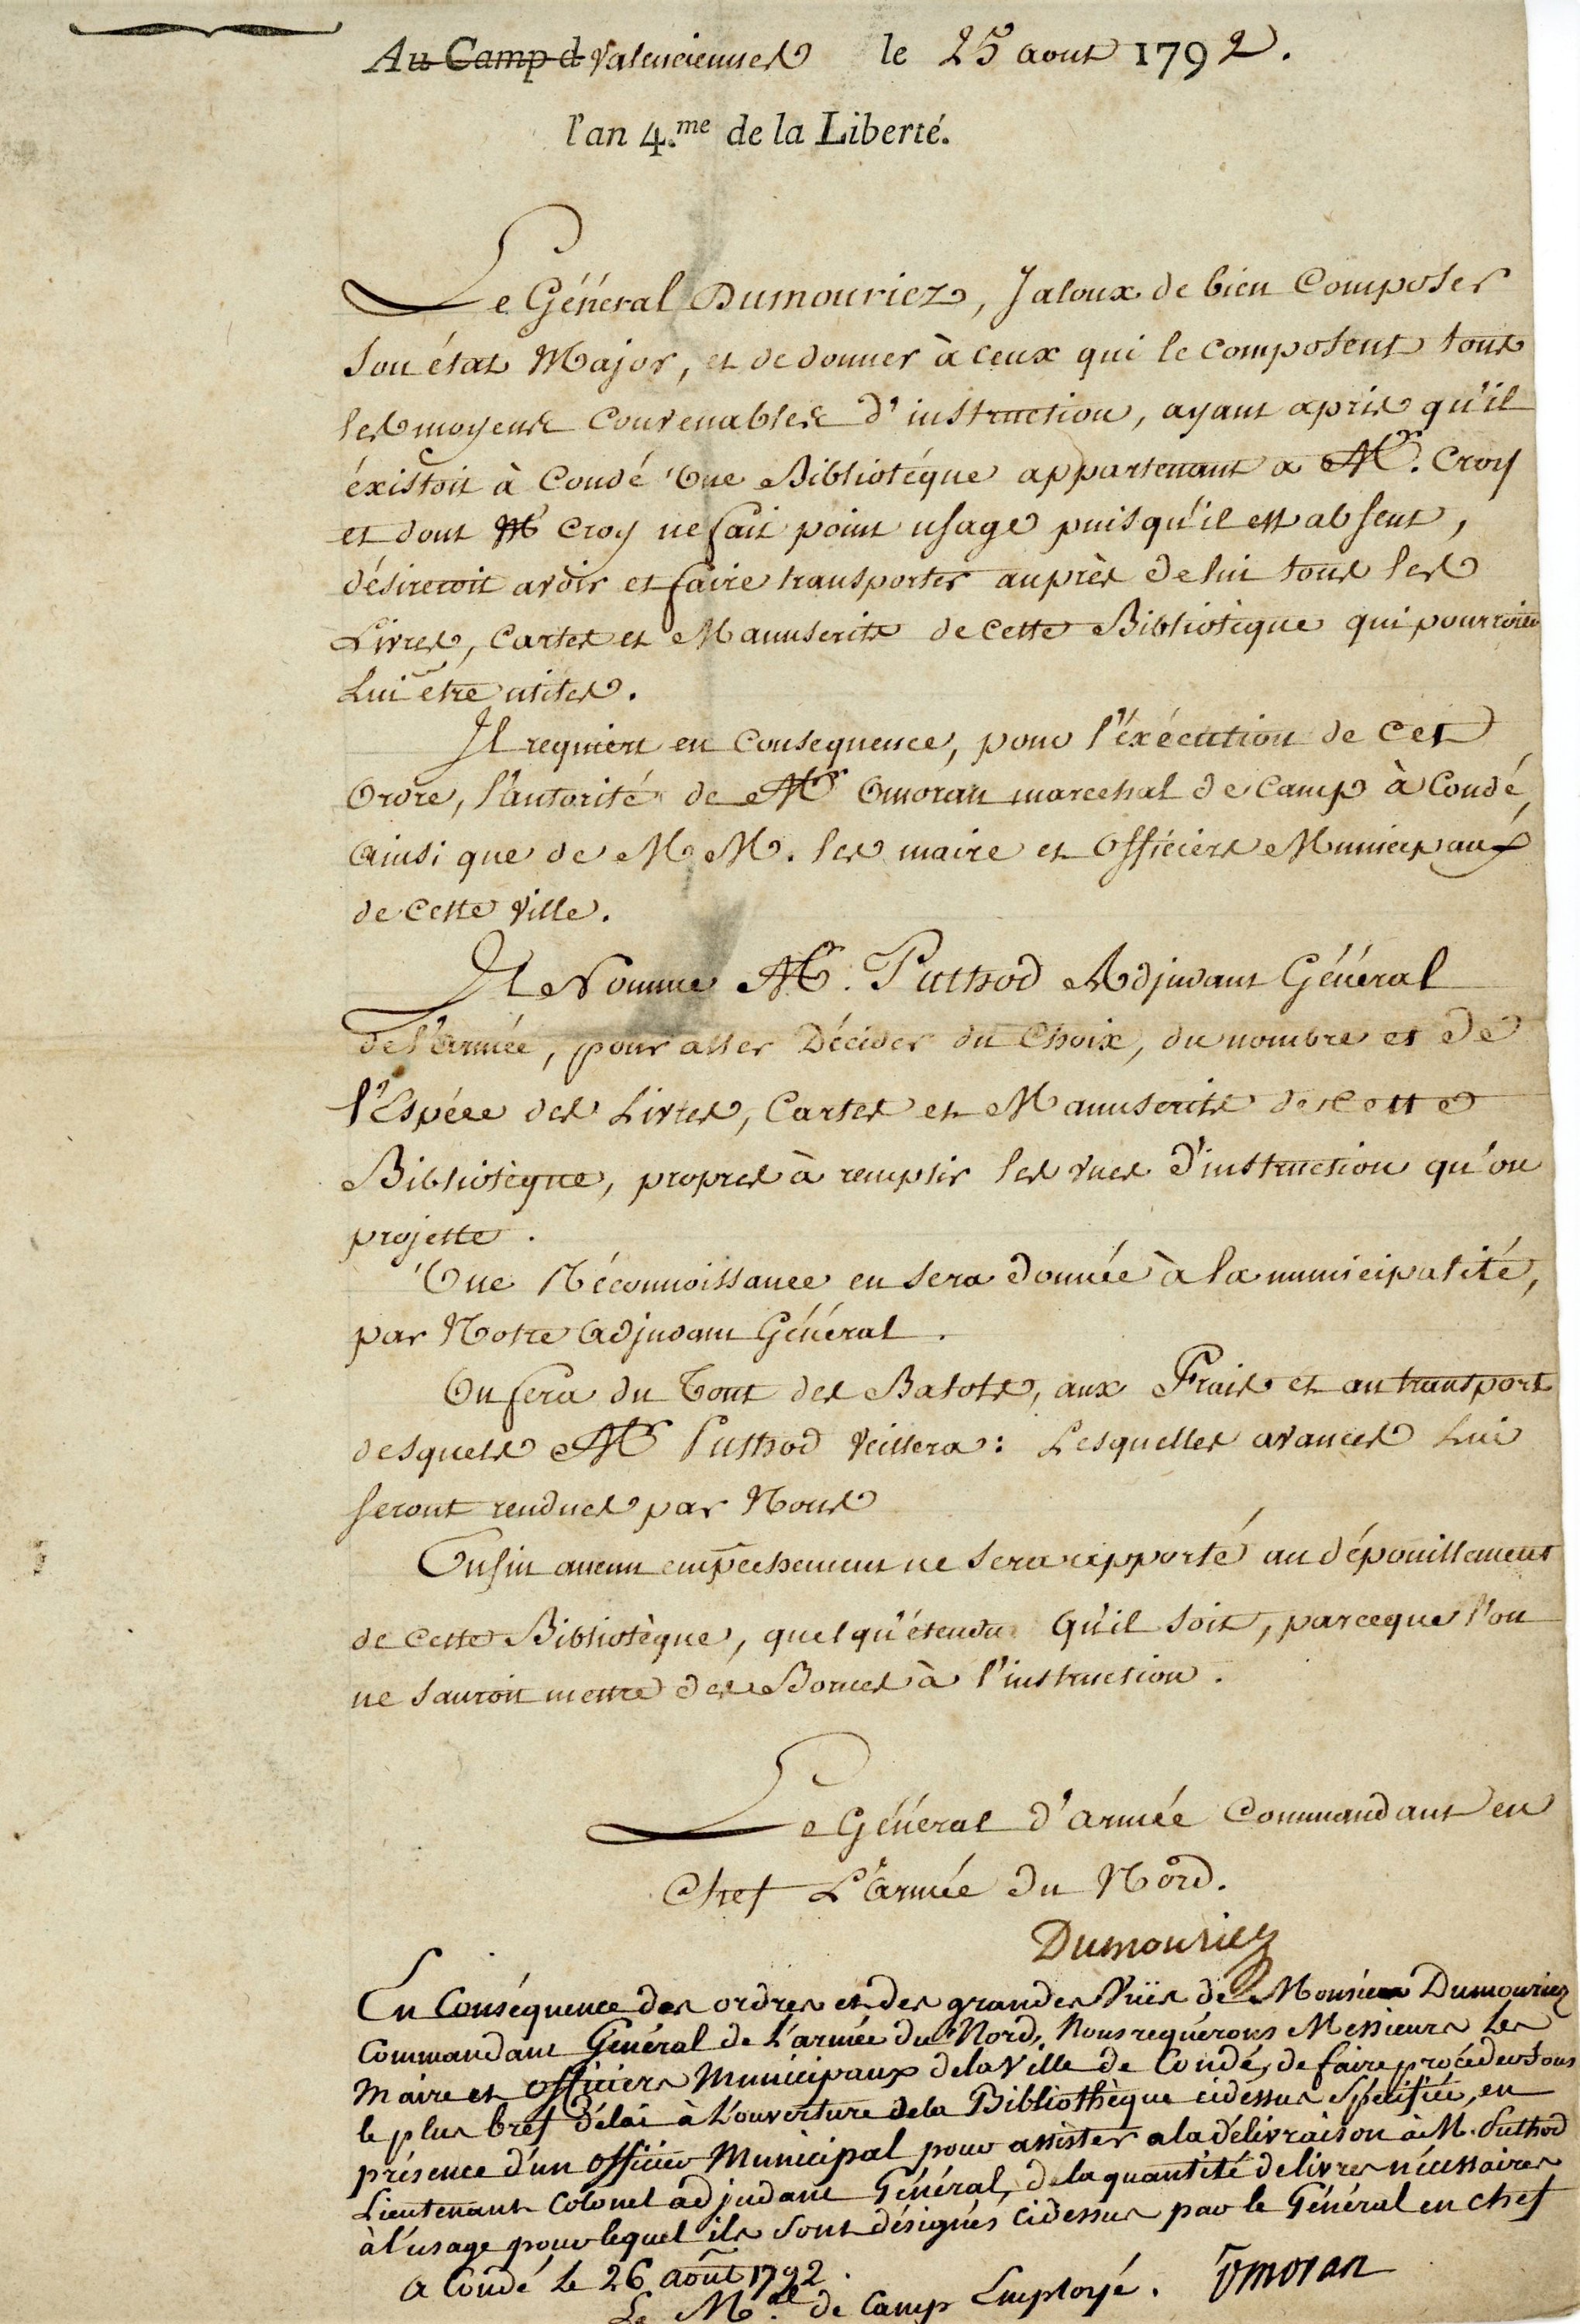 Au Camp d Valenciennes le 25 aout 1792.
l'an 4.me de la Liberté.
Le Général Dumouriez, Jaloux de bien Composer
son état Major, et de donner à ceux qui le composent tous
les moyens convenables d'instruction, ayant apris qu'il
éxistoit à Condé Une Bibliotéque appartenant a Mr. Croy
et dont Mr Croy ne fait point usage puisqu'il est absent,
désireroit avoir et faire transporter auprès de lui tous les
Livres, Cartes et Manuscrits de cette Bibliotèque qui pourroient
Lui être utiles.
Il requiert en Consequence, pour l'éxécution de cet
Ordre, l'autorité de Mr Omoran marechal de Camp à Condé,
Ainsi que de M. M. les maire et Officiers Municipaux
de cette Ville.
Il Nomme Mr. Puthod Adjudant Général
de l'armée, pour aller Décider du Choix, du nombre et de
l'Espéce des Livres, Cartes et Manuscrits de cette
Bibliotèque, propres à remplir les vues d'instruction qu'on
projette.
Une Réconnoissance en sera donnée à la municipalité,
par Notre Adjudant Général.
On fera du Tout des Balots, aux Frais et au transport
desquels Mr Puthod veillera: Lesquelles avances Lui
seront rendues par Nous
Enfin aucun empêchement ne sera apporté au dépouillement
de cette Bibliotèque, quelqu'étendu Qu'il soit, parceque l'on
ne sauroit mettre des Bornes à l'instruction.
Le Général d'armée Commandant en
Chef L'armée du Nord.
Dumouriez
En Conséquence des ordres et des grandes Vües de Monsieur Dumouriez
Commandant Général de L'armée du Nord, Nous requérons Messieurs Les
Maire et officiers Municipaux de la Ville de Condé, de faire procéder sous
le plus bref délai à L'ouverture de la Bibliothèque cidessus Spécifiée, en
présence d'un officier Municipal pour assister a la délivraison à M. Puthod
Lieutenant Colonel adjudant Général, de la quantité de livres nécessaires
à l'usage pour lequel ils sont désignés cidessus par le Général en chef
a Condé le 26 août 1792.
Le Mal. de Camp Employé. Omoran